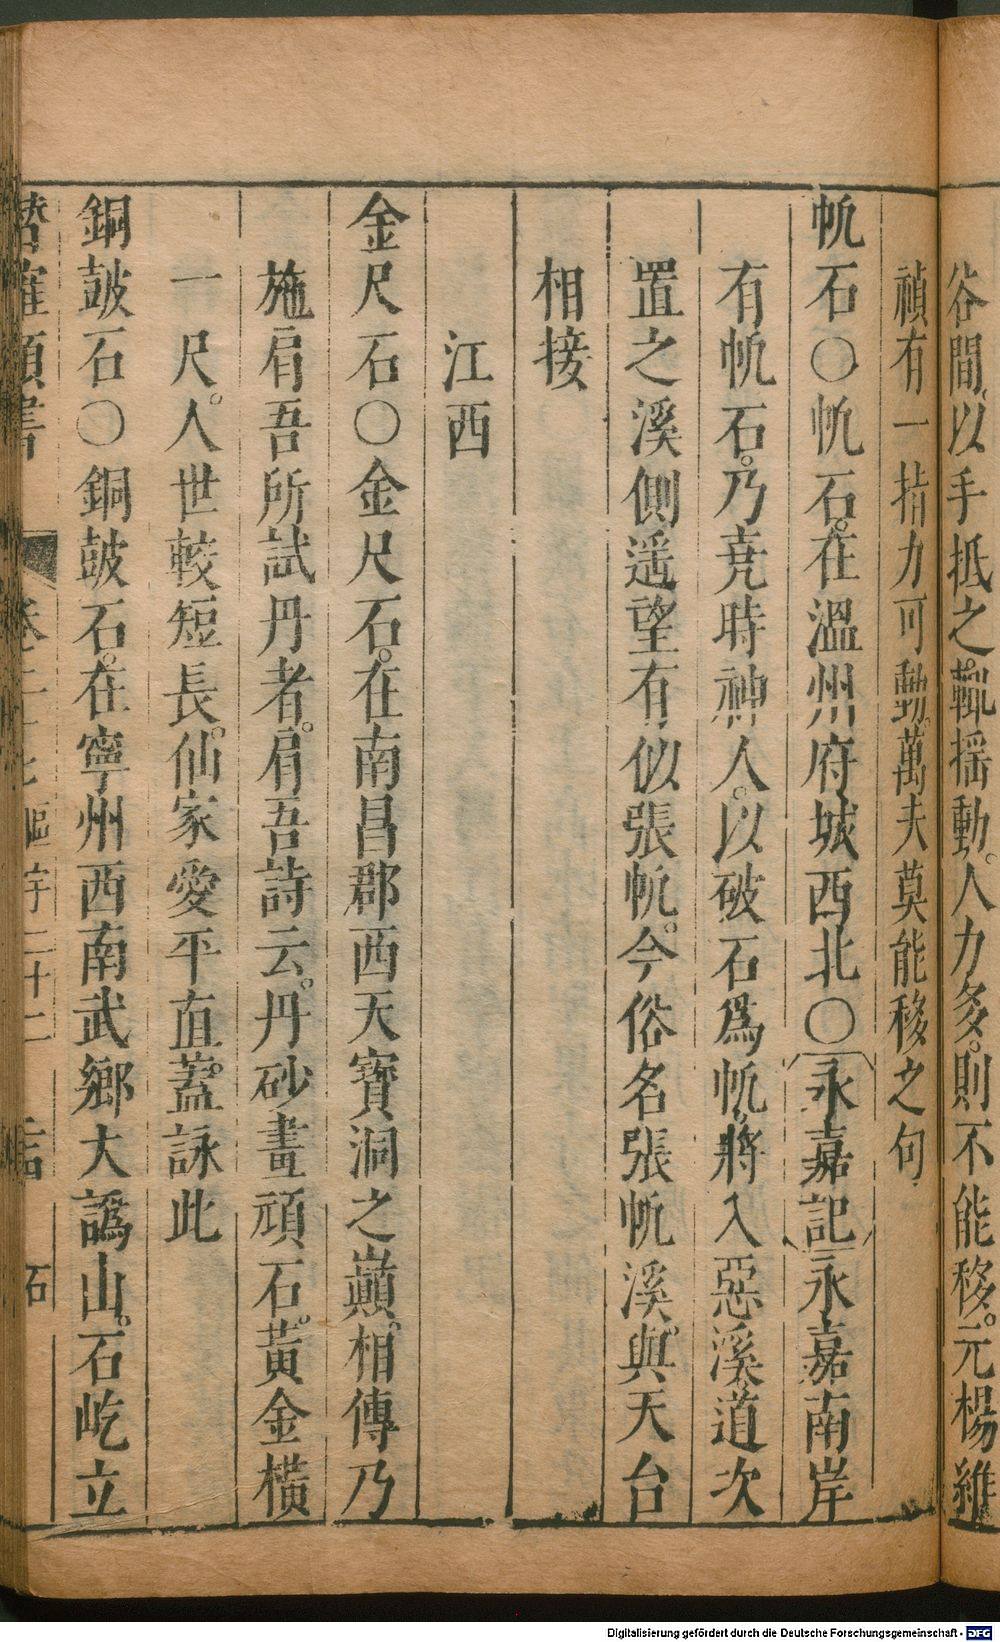 谷間以手抵之。輒揺動。人力多。則不能移。元楊維
禎有一指力可動。萬夫莫能移之句
帆石〇帆石。在溫州府城西北〇永嘉記永嘉南岸
有帆石。乃尭時神人。以破石爲帆。將入惡溪道次
置之溪側遥望有似張帆。今俗名張帆溪。與天台
相接
江西
金尺石〇金尺石。在南昌郡西天寶洞之巔。相傳乃
施肩吾所試丹者。肩吾詩云。丹砂畫頑石。黃金橫
一尺。人世較短長。仙家愛平直。蓋詠此
銅皷石〇銅皷石。在寧州西南武鄉大譌山。石屹立
卷二 區宇二十二 石
Digitalisierung gefördert durch die Deutsche Forschungsgemeinschaft - DFG